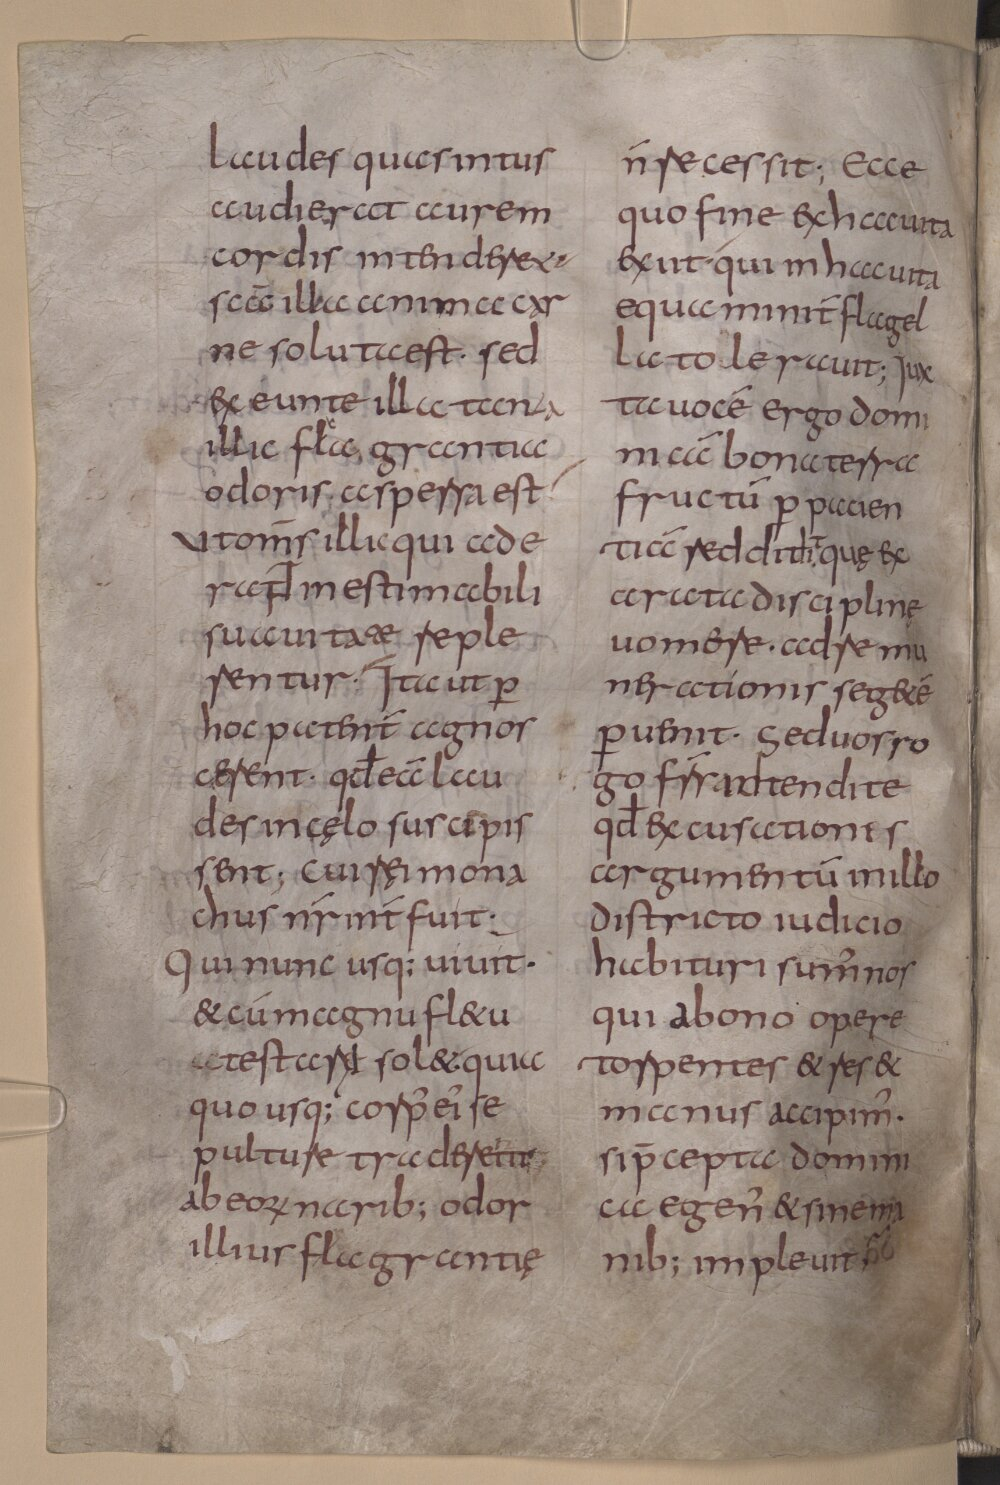 laudes quas intus
audierat aurem
cordis intenderet
scā illa anima car
ne soluta est. sed
exeunte illa tanta
illic flagrantia
odoris aspersa est.
ut om̄s illic qui ade
rant inestimabili
suauitate reple
rentur. Ita ut ꝑ
hoc patent̄ agnos
cerent. qđ eā lau
des in cęlo suscipis
sent; Cui rei mona
chus nr̄ int̄fuit.
Qui nunc usq; uiuit.
& cū magnu fl&u
attestari sol& quia
quousq; corp̄ ei se
pulture traderetur
ab eoꝝ narib; odor
illius flagrantię
n̄ recessit; Ecce
quo fine ex hac uita
exiit qui in hac uita
equanimit̄ flagel
la tolerauit; Jux
ta uocē ergo domi
nicā bona terra
fructū ꝑ pacien
tiā reddidit quę ex
arata disciplinę
uomere. ad remu
nerationis seg&ē
ꝑuenit. Sed uos ro
go fr̄s adtendite
qđ excusationis
argumentū in illo
districto iudicio
habituri sum̄ nos
qui a bono opere
torpentes & res &
manus accipim̄.
si p̄cepta domini
ca egen̄ & sine ma
nib; impleuit